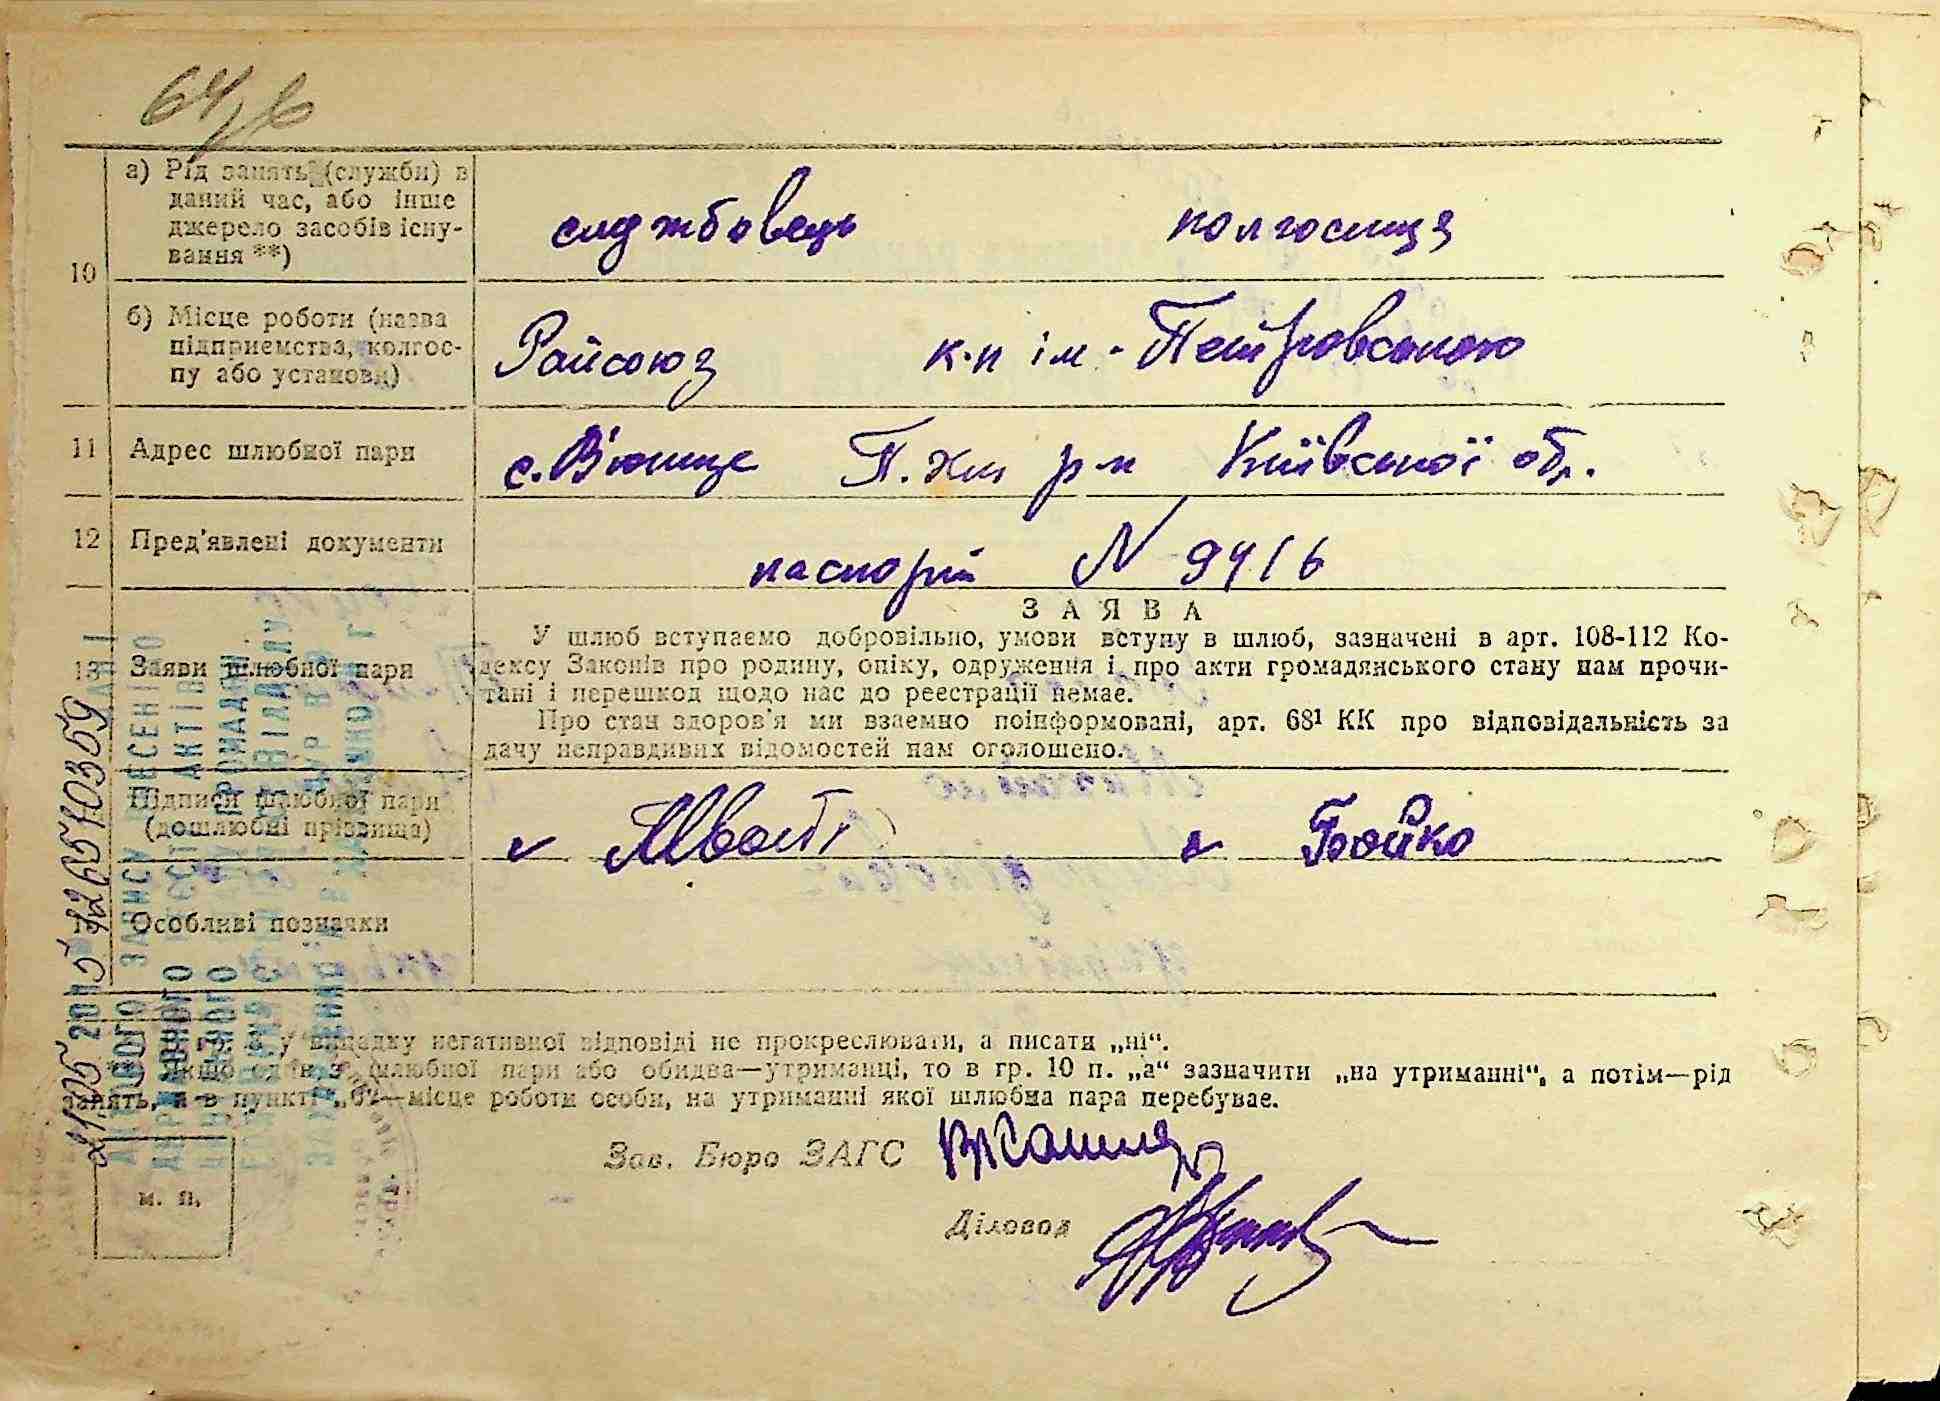 64/в
а) Рід занять (служби) в
даний час, або інше
джерело засобів існу-
вання **)
службовець колгоспниця
10
б) Місце роботи (назва
підприємства, колгос-
пу або установи)
Райсоюз к-п ім. Петровського
11 Адрес шлюбної пари
с. В'юнище П. Хм р-н Київської обл.
12 Пред'явлені документи
паспорт N 9416
ЗАЯВА
13 Заяви шлюбної пари
У шлюб вступаємо добровільно, умови вступу в шлюб, зазначені в арт. 108-112 Ко-
дексу Законів про родину, опіку, одруження і про акти громадянського стану нам прочи-
тані і перешкод щодо нас до реєстрації немає.
Про стан здоров'я ми взаємно поінформовані, арт. 68¹ КК про відповідальність за
дачу неправдивих відомостей нам оголошено.
Підписи шлюбної пари
(дошлюбні прізвища)
Бойко
Особливі позначки
у випадку негативної відповіді не прокреслювати, а писати „ні“.
** Якщо один з шлюбної пари або обидва—утриманці, то в гр. 10 п. „а“ зазначити „на утриманні“, а потім—рід
занять, а в пункті „б“—місце роботи особи, на утриманні якої шлюбна пара перебуває.
Зав. Бюро ЗАГС
Діловод
м. п.